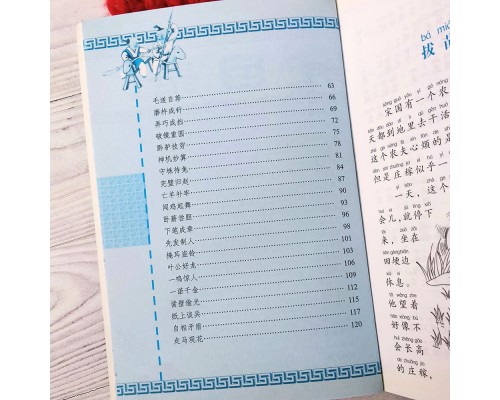 毛遂自荐 63
磨杵成针 66
弄巧成拙 69
破镜重圆 72
黔驴技穷 75
神机妙算 78
守株待兔 81
完璧归赵 84
亡羊补牢 87
闻鸡起舞 90
卧薪尝胆 93
下笔成章 96
先发制人 98
掩耳盗铃 101
叶公好龙 103
一鸣惊人 106
一诺千金 109
凿壁偷光 112
纸上谈兵 115
自相矛盾 117
走马观花 120
bá miáo
拔苗
sòng guó yǒu yí gè nóng
宋国有一个农
天都到地里去干活
这个农夫心烦的是
但是庄稼似乎一
yì tiān zhè gè
一天，这个
huì er jiù tíng xià
会儿，就停下
lái zuò zài
来，坐在
tián gěng biān
田埂边
xiū xi
休息。
tā wàng zhe
他望着
hǎo xiàng bù
好像不
huì zhǎng gāo
会长高
de zhuāng jia
的庄稼，